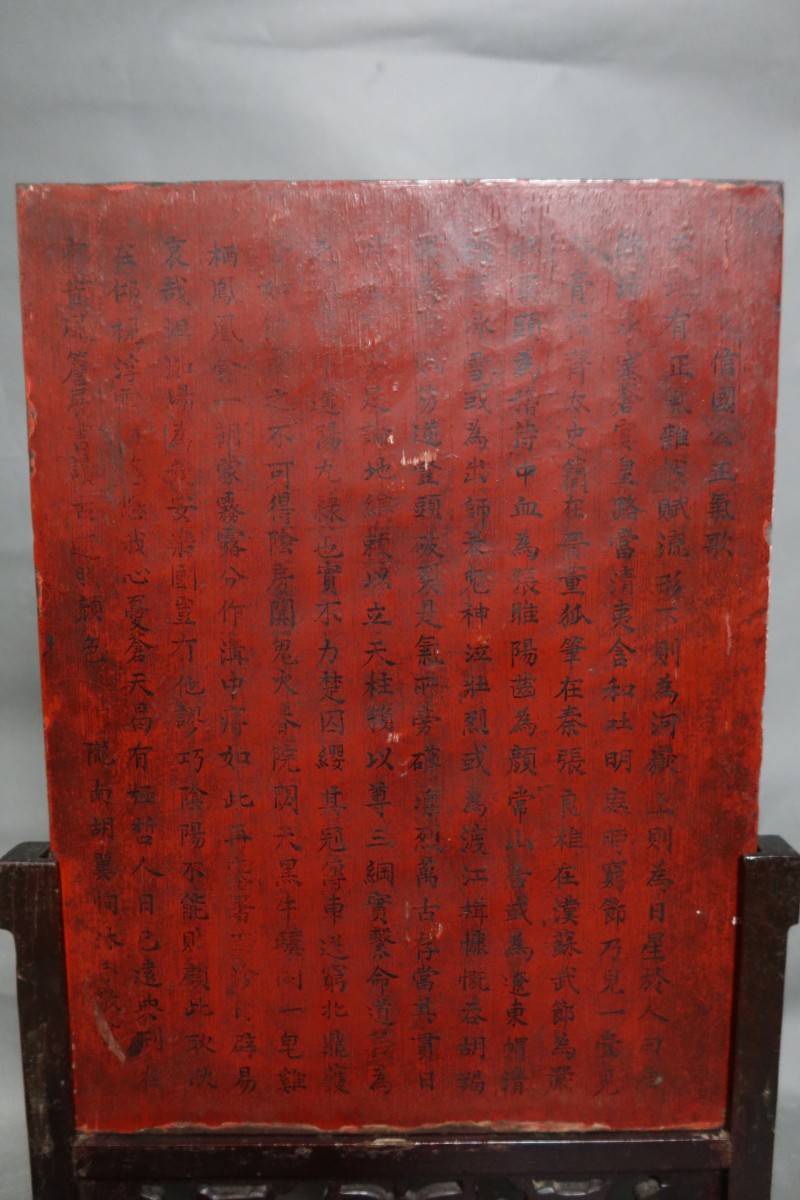 信國公正氣歌
有正氣雜然賦流形下則為河嶽上則為日星於人曰
沛乎塞蒼冥皇路當清夷含和吐明庭時窮節乃見一
青在齊太史簡在晉董狐筆在秦張良椎在漢蘇武節為嚴
將軍頭為嵇侍中血為張睢陽齒為顏常山舌或為遼東帽清
冰雪或為出師表鬼神泣壯烈或為渡江楫慷慨吞胡羯
笏逆豎頭破裂是氣所旁礴凜烈萬古存當其貫日
月足論地維賴以立天柱賴以尊三綱實繫命道義為
遘陽九隸也實不力楚囚纓其冠傳車送窮北鼎鑊
如飴求之不可得陰房闃鬼火春院閟天黑牛驥同一皂雞
栖鳳凰食一朝蒙霧露分作溝中瘠如此再寒暑百沴自辟易
哀哉沮洳場為我安樂國豈有他謬巧陰陽不能賊顧此耿耿
在仰視浮雲我心憂蒼天曷有極哲人日已遠典刑在
昔風簷展書讀古照顏色 隴南胡沐